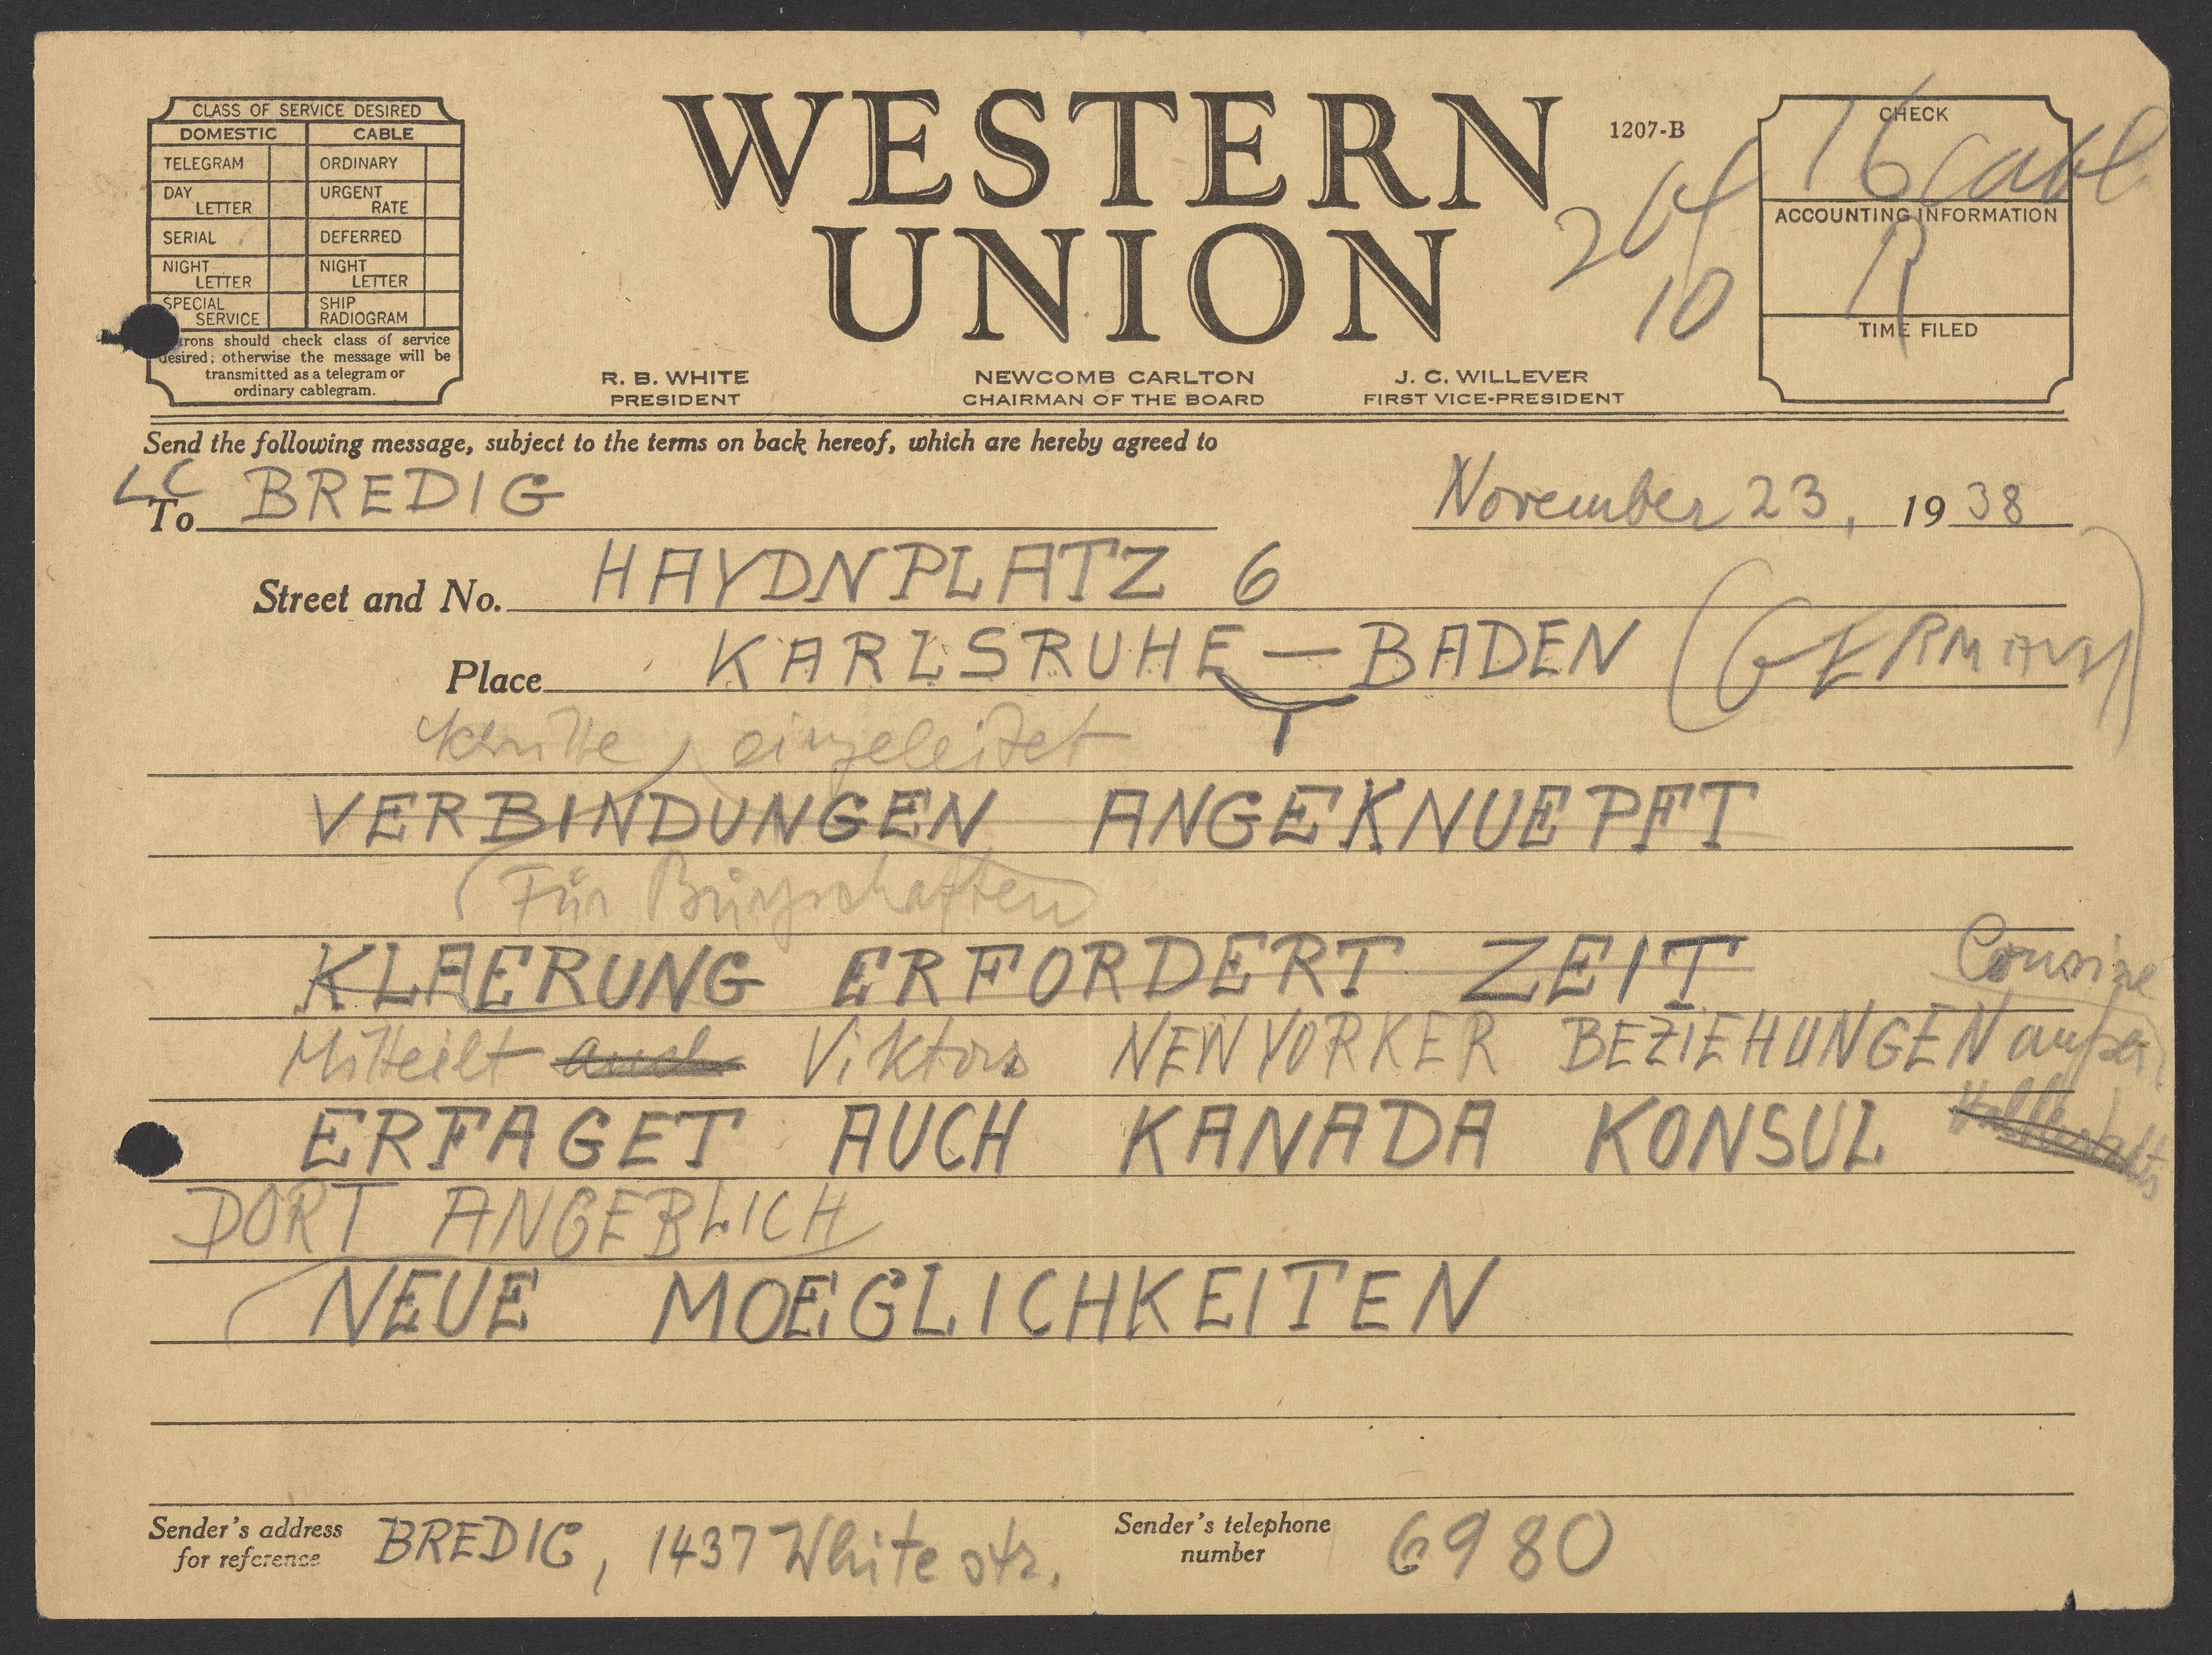 CLASS OF SERVICE DESIRED
DOMESTIC CABLE
TELEGRAM ORDINARY
DAY LETTER URGENT RATE
SERIAL DEFERRED
NIGHT LETTER NIGHT LETTER
SPECIAL SERVICE SHIP RADIOGRAM
trons should check class of service
desired; otherwise the message will be
transmitted as a telegram or
ordinary cablegram.
WESTERN
UNION
1207-B
R. B. WHITE
PRESIDENT
NEWCOMB CARLTON
CHAIRMAN OF THE BOARD
J. C. WILLEVER
FIRST VICE-PRESIDENT
10
CHECK
16 Cable
ACCOUNTING INFORMATION
R
TIME FILED
Send the following message, subject to the terms on back hereof, which are hereby agreed to
LC
To BREDIG November 23, 1938
Street and No. HAYDNPLATZ 6
Place KARLSRUHE — BADEN (GERMANY)
eingeleitet
VERBINDUNGEN ANGEKNUEPFT
Für Bürgschaften
KLAERUNG ERFORDERT ZEIT Cousine
Mitteilt auch Viktors NEWYORKER BEZIEHUNGEN außer
ERFAGET AUCH KANADA KONSUL
DORT ANGEBLICH
NEUE MOEGLICHKEITEN
Sender's address for reference BREDIG, 1437 White str.
Sender's telephone number 6980